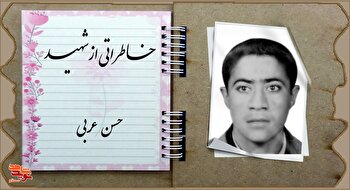 خاطراتی از شهید
حسن عربی